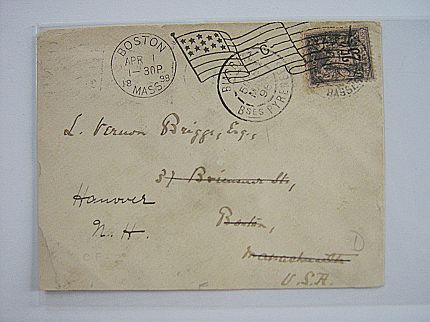 BOSTON
APR 1
1-30P
18 98
MASS.
C
BSES PYRENEES
25
L. Vernon Briggs, Esq.,
37 Brimmer St.,
Hanover
Boston,
N. H.
Massachusetts
U.S.A.